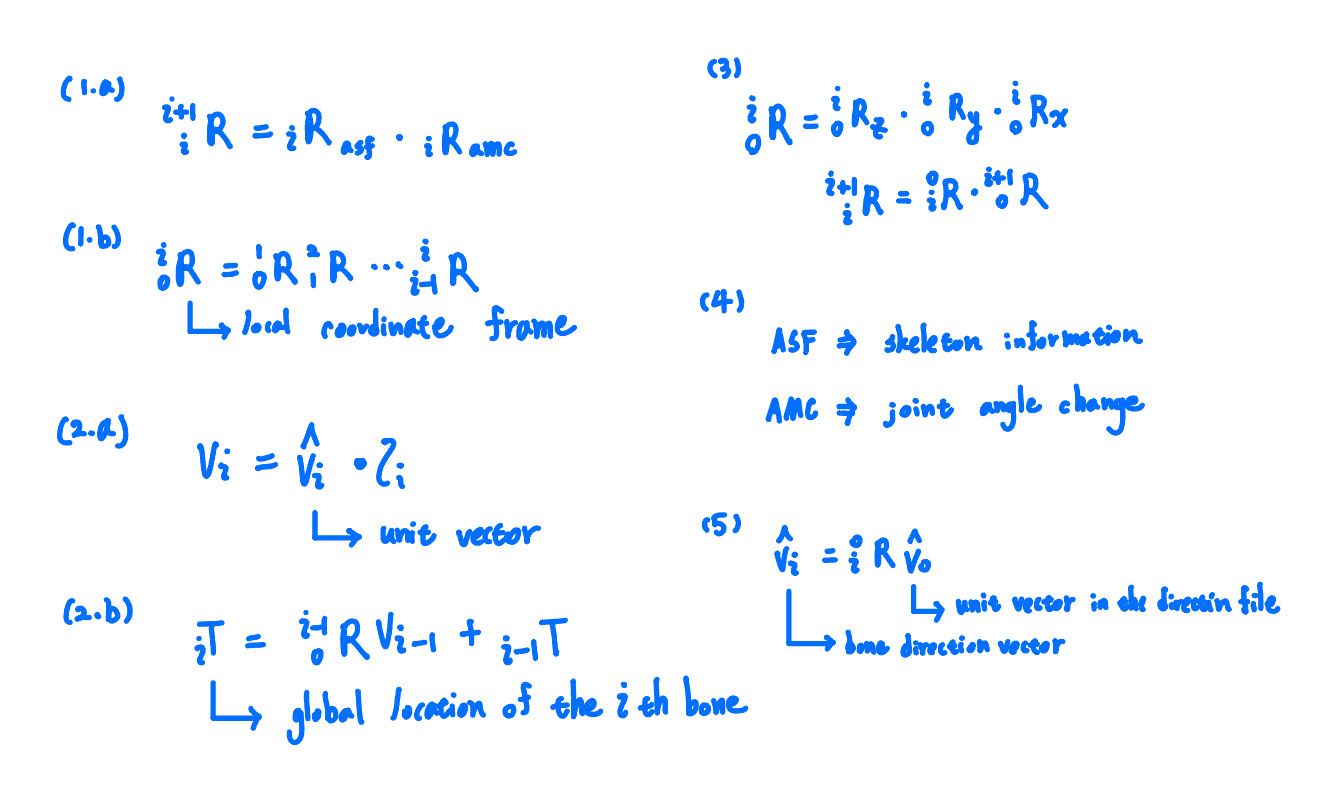 (1.a)
^{i+1}_{i}R = _{i}R_{asf} · _{i}R_{amc}
(1.b)
^{i}_{0}R = ^{1}_{0}R ^{2}_{1}R ⋯ ^{i}_{i-1}R
↳ local coordinate frame
(2.a)
V_i = \hat{V}_i · l_i
↳ unit vector
(2.b)
_{i}T = ^{i-1}_{0}R V_{i-1} + _{i-1}T
↳ global location of the i th bone
(3)
^{i}_{0}R = ^{i}_{0}R_z · ^{i}_{0}R_y · ^{i}_{0}R_x
^{i+1}_{i}R = ^{0}_{i}R · ^{i+1}_{0}R
(4)
ASF ⇒ skeleton information
AMC ⇒ joint angle change
(5)
\hat{V}_i = ^{0}_{i}R \hat{V}_0
↳ unit vector in the directin file
↳ bone direction vector